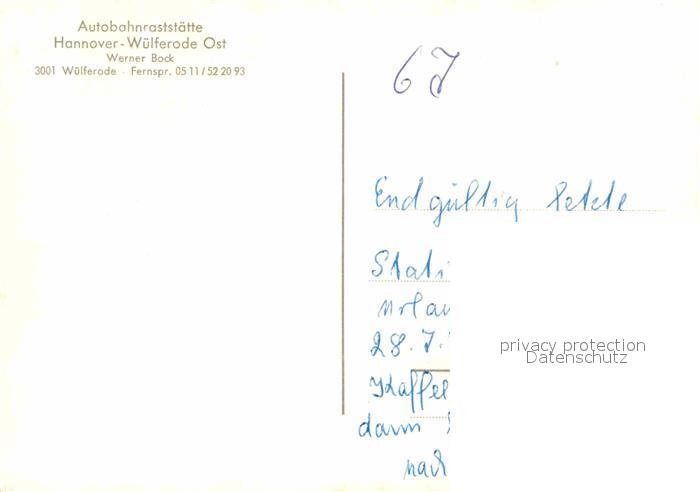 Autobahnraststätte
Hannover-Wülferode Ost
Werner Bock
3001 Wülferode · Fernspr. 05 11 / 52 20 93
67
Endgültig letzte
Stati
urlau
28.7.
privacy protection
Datenschutz
Kaffee
dann
nach